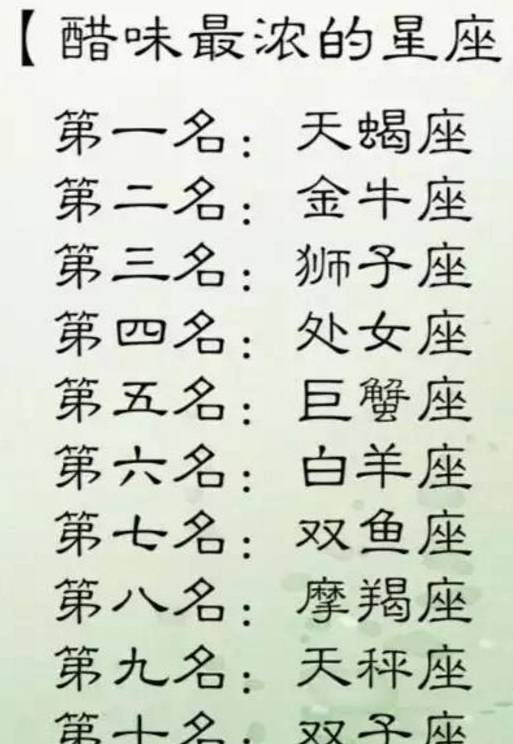 【醋味最浓的星座
第一名：天蝎座
第二名：金牛座
第三名：狮子座
第四名：处女座
第五名：巨蟹座
第六名：白羊座
第七名：双鱼座
第八名：摩羯座
第九名：天秤座
第十名：双子座